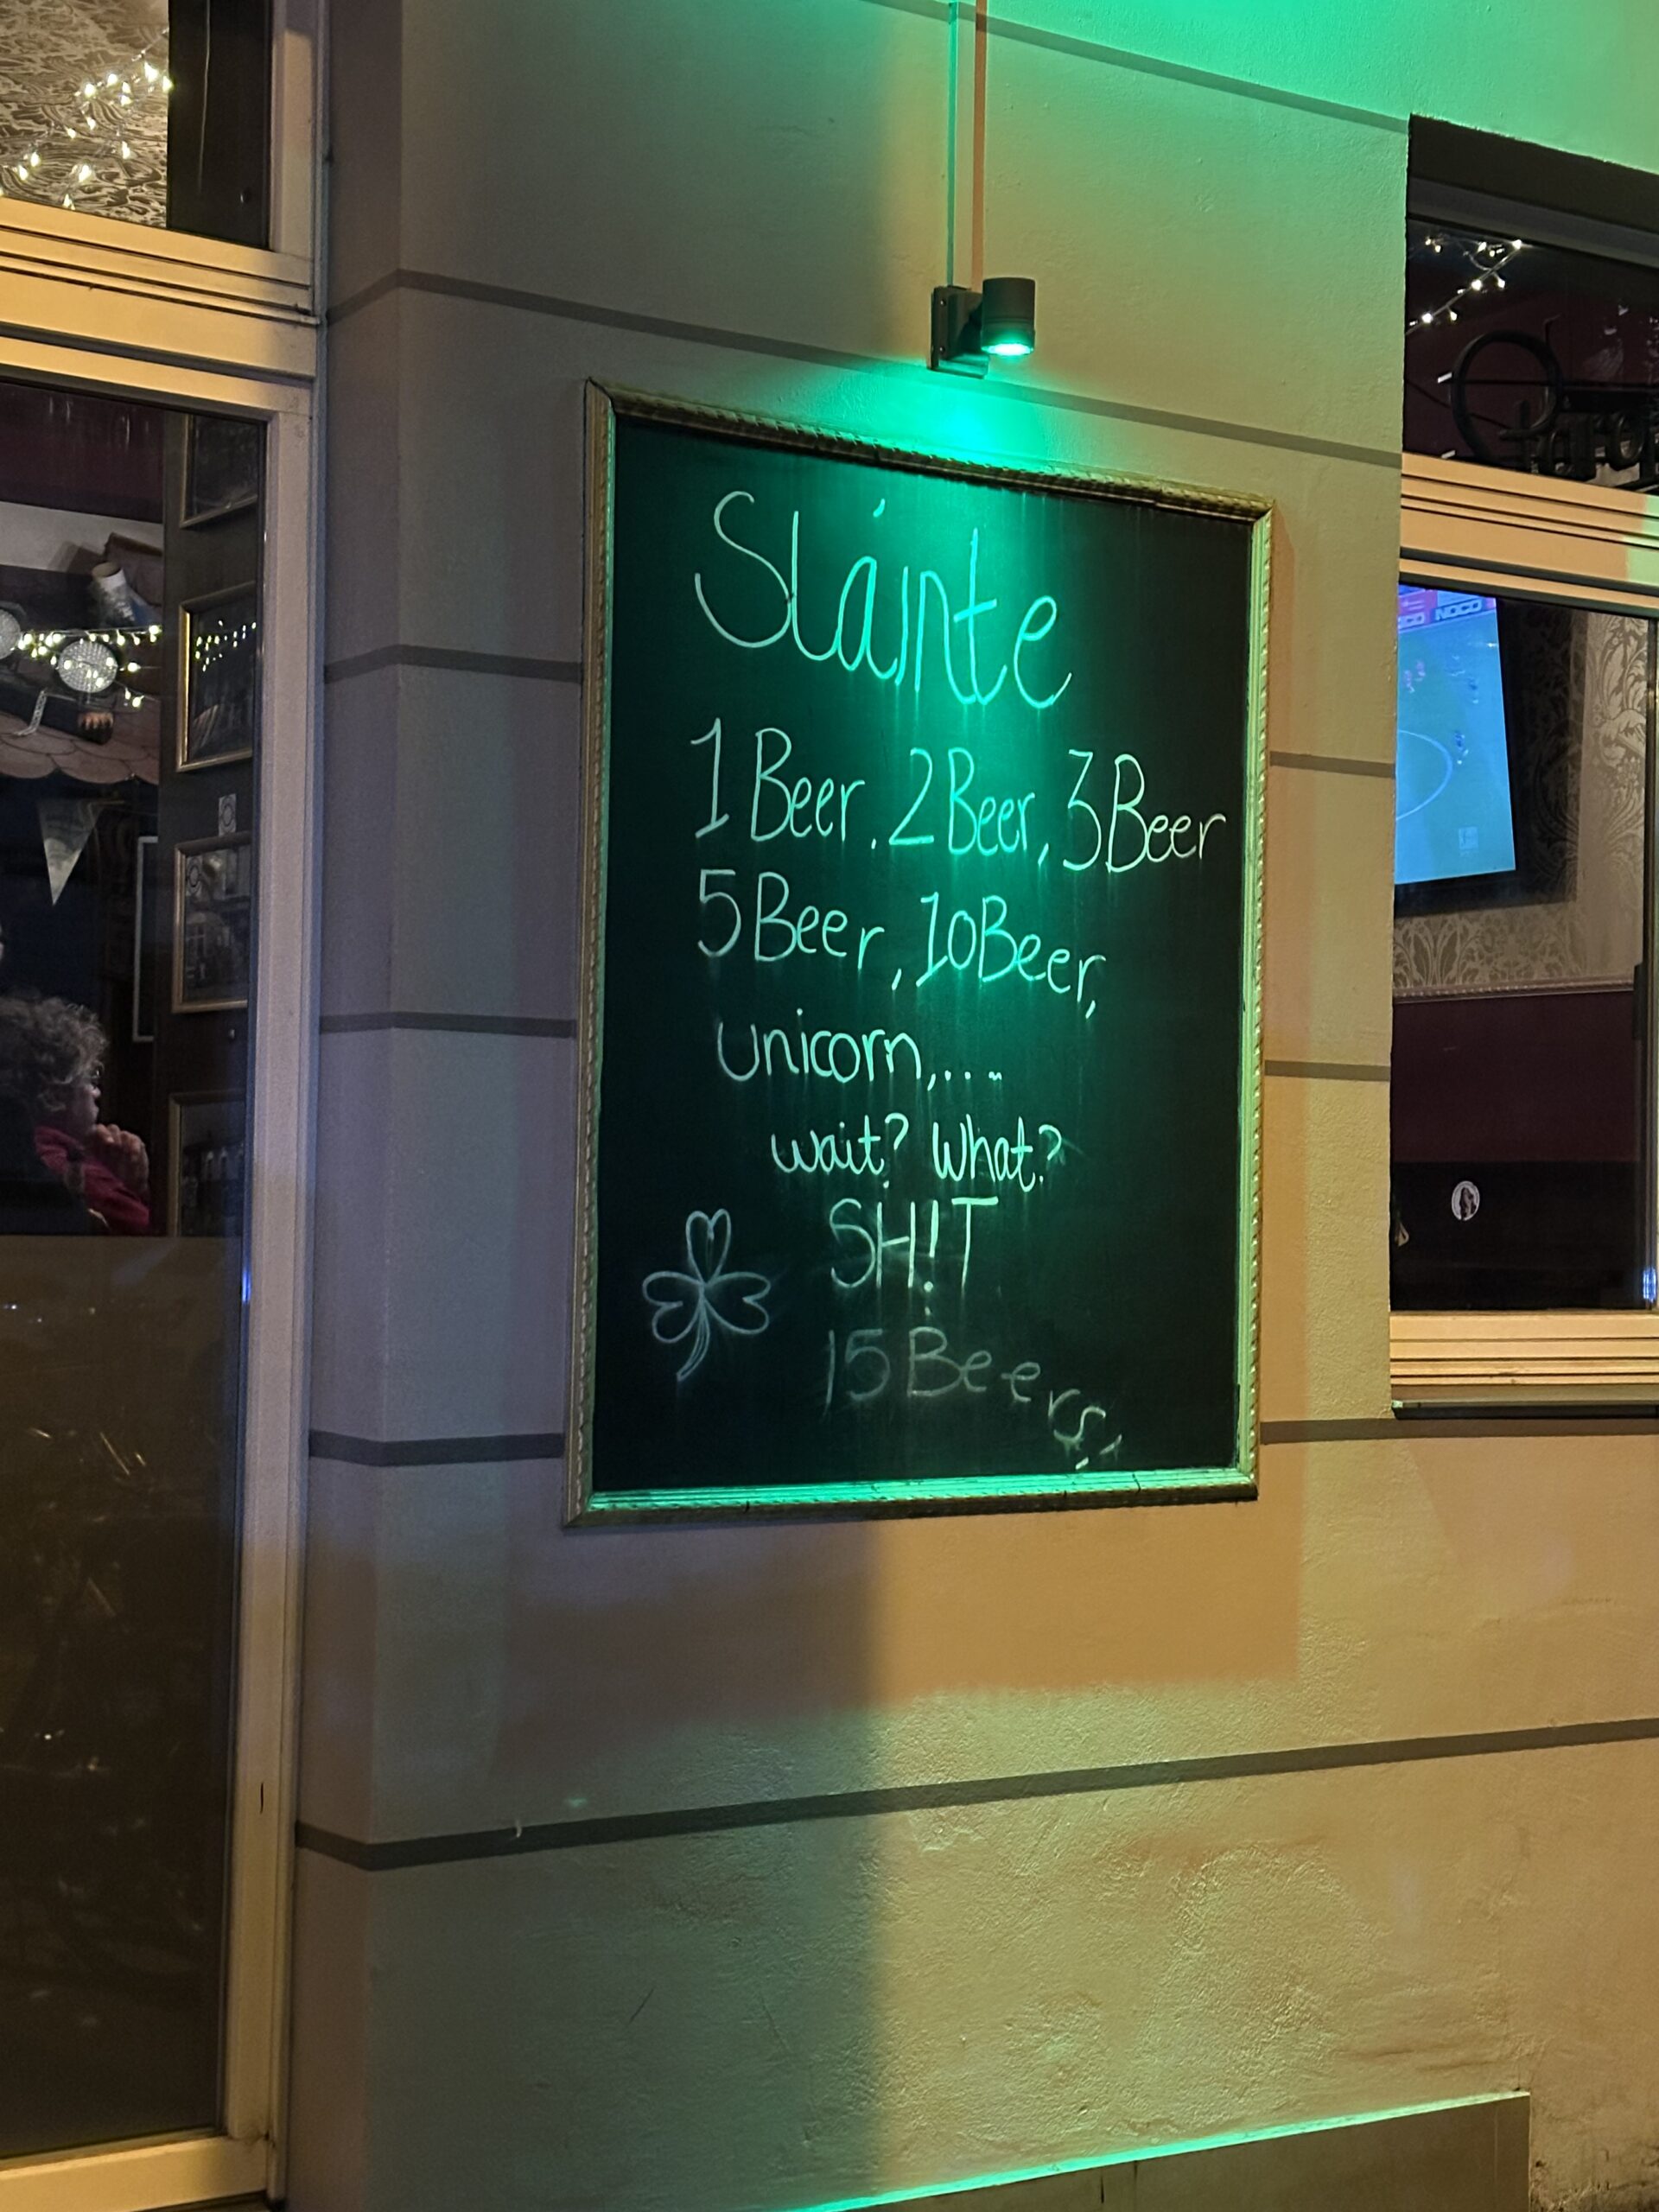 Sláinte
1 Beer. 2 Beer, 3 Beer
5 Beer, 10 Beer,
unicorn,....
wait? What?
SH!T
15 Beers,
NOCO